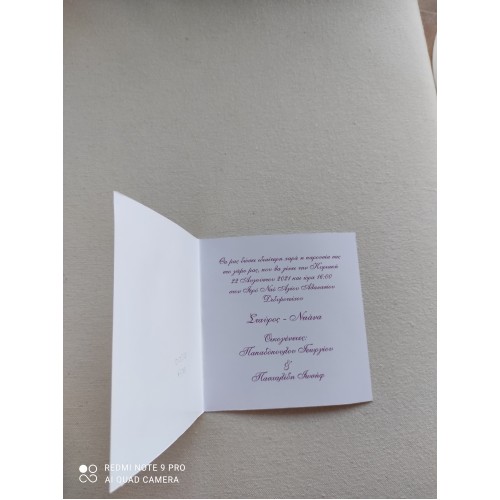 Θα μας δώσει ιδιαίτερη χαρά η παρουσία σας
στο γάμο μας, που θα γίνει την Κυριακή
22 Αυγούστου 2021 και ώρα 16:00
στον Ιερό Ναό Αγίου Αθανασίου
Διδυμοτείχου
Σταύρος - Νάνα
Οικογένειες
Παπαδόπουλου Γεωργίου
&
Πασχαλίδη Ιωσήφ
REDMI NOTE 9 PRO
AI QUAD CAMERA